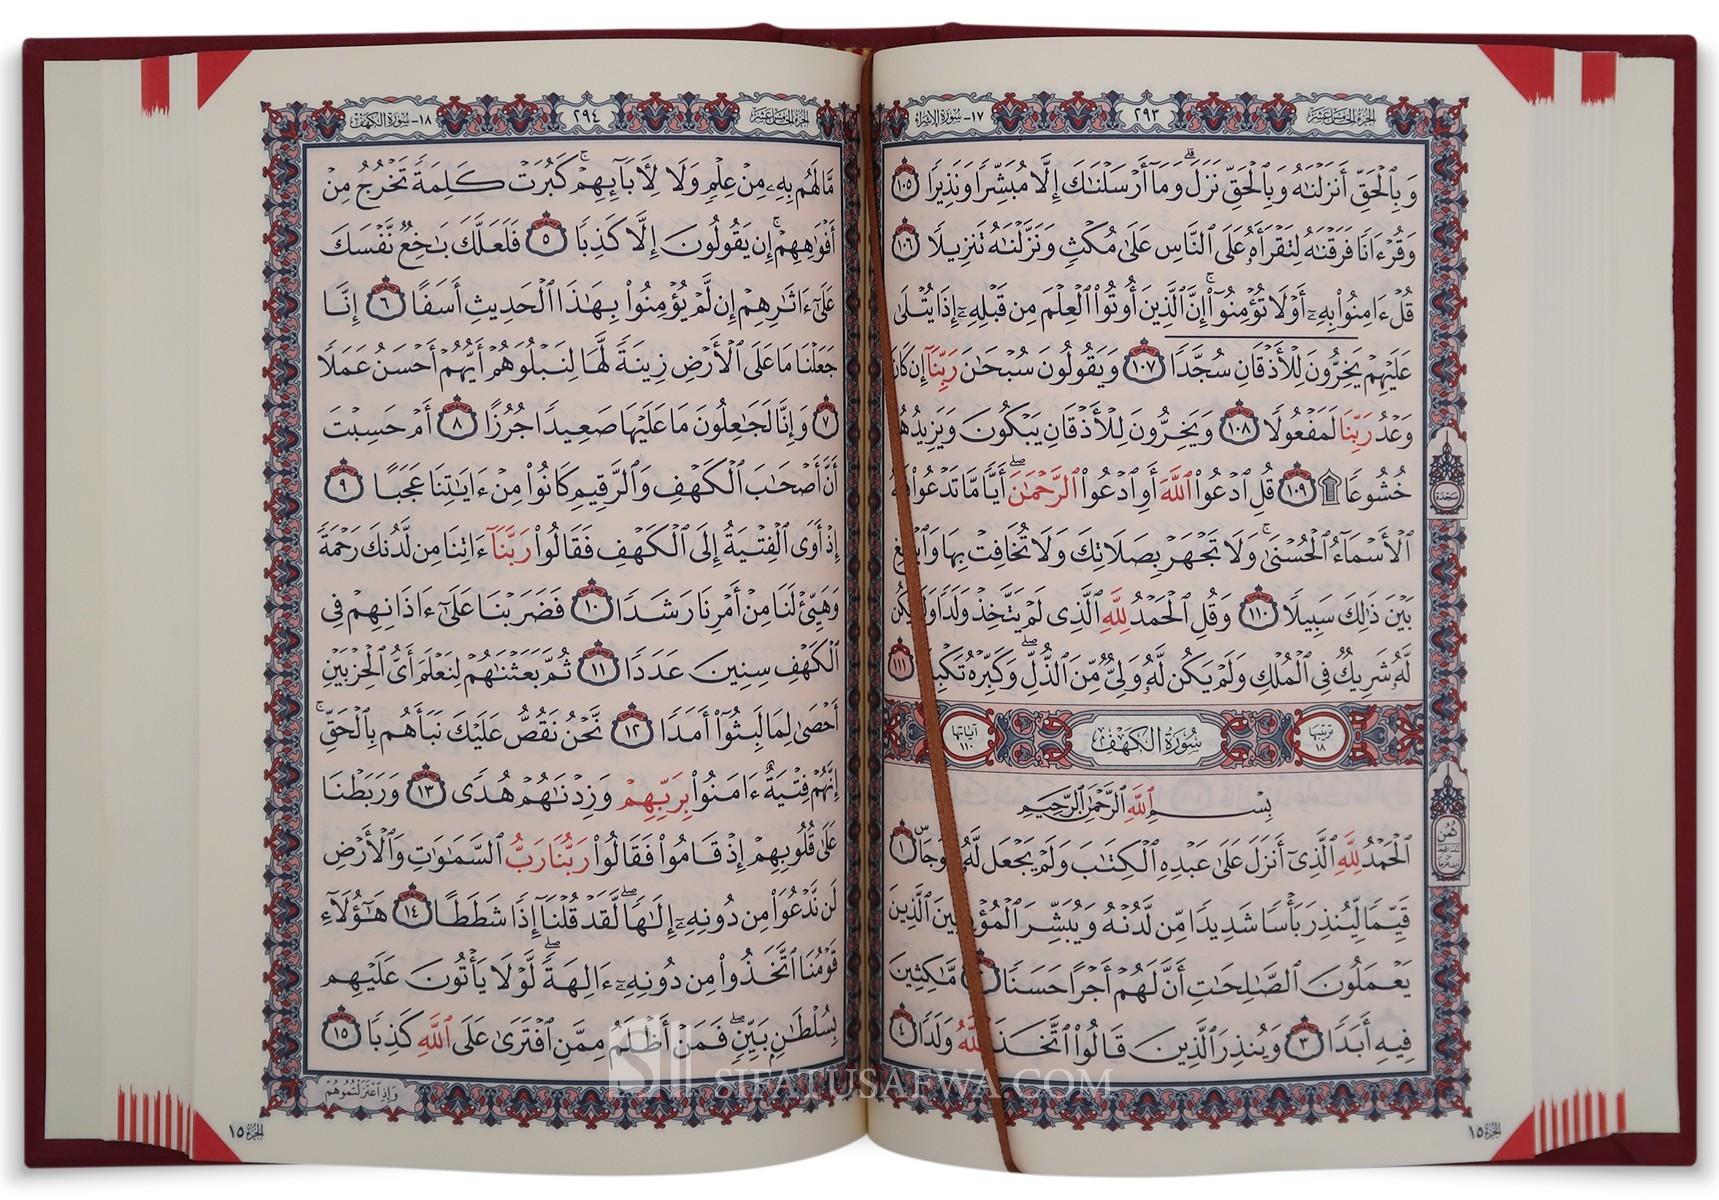 ١٧- سُورَةُ الإِسْرَاءِ ٢٩٣ الجُزْءُ الخَامِسَ عَشَرَ
وَبِٱلْحَقِّ أَنزَلْنَٰهُ وَبِٱلْحَقِّ نَزَلَ ۗ وَمَآ أَرْسَلْنَٰكَ إِلَّا مُبَشِّرًا وَنَذِيرًا ١٠٥
وَقُرْءَانًا فَرَقْنَٰهُ لِتَقْرَأَهُۥ عَلَى ٱلنَّاسِ عَلَىٰ مُكْثٍ وَنَزَّلْنَٰهُ تَنزِيلًا ١٠٦
قُلْ ءَامِنُوا۟ بِهِۦٓ أَوْ لَا تُؤْمِنُوٓا۟ ۚ إِنَّ ٱلَّذِينَ أُوتُوا۟ ٱلْعِلْمَ مِن قَبْلِهِۦٓ إِذَا يُتْلَىٰ
عَلَيْهِمْ يَخِرُّونَ لِلْأَذْقَانِ سُجَّدًا ١٠٧ وَيَقُولُونَ سُبْحَٰنَ رَبِّنَآ إِن كَانَ
وَعْدُ رَبِّنَا لَمَفْعُولًا ١٠٨ وَيَخِرُّونَ لِلْأَذْقَانِ يَبْكُونَ وَيَزِيدُهُمْ
خُشُوعًا ۩ ١٠٩ قُلِ ٱدْعُوا۟ ٱللَّهَ أَوِ ٱدْعُوا۟ ٱلرَّحْمَٰنَ ۖ أَيًّا مَّا تَدْعُوا۟ فَلَهُ
ٱلْأَسْمَآءُ ٱلْحُسْنَىٰ ۚ وَلَا تَجْهَرْ بِصَلَاتِكَ وَلَا تُخَافِتْ بِهَا وَٱبْتَغِ
بَيْنَ ذَٰلِكَ سَبِيلًا ١١٠ وَقُلِ ٱلْحَمْدُ لِلَّهِ ٱلَّذِى لَمْ يَتَّخِذْ وَلَدًا وَلَمْ يَكُن
لَّهُۥ شَرِيكٌ فِى ٱلْمُلْكِ وَلَمْ يَكُن لَّهُۥ وَلِىٌّ مِّنَ ٱلذُّلِّ ۖ وَكَبِّرْهُ تَكْبِيرًا ١١١
سَجْدَة
تَرْتِيبُهَا ١٨ سُورَةُ الكَهْفِ آيَاتُهَا ١١٠
بِسْمِ ٱللَّهِ ٱلرَّحْمَٰنِ ٱلرَّحِيمِ
ٱلْحَمْدُ لِلَّهِ ٱلَّذِىٓ أَنزَلَ عَلَىٰ عَبْدِهِ ٱلْكِتَٰبَ وَلَمْ يَجْعَل لَّهُۥ عِوَجَا ۜ ١
قَيِّمًا لِّيُنذِرَ بَأْسًا شَدِيدًا مِّن لَّدُنْهُ وَيُبَشِّرَ ٱلْمُؤْمِنِينَ ٱلَّذِينَ
يَعْمَلُونَ ٱلصَّٰلِحَٰتِ أَنَّ لَهُمْ أَجْرًا حَسَنًا ٢ مَّٰكِثِينَ
فِيهِ أَبَدًا ٣ وَيُنذِرَ ٱلَّذِينَ قَالُوا۟ ٱتَّخَذَ ٱللَّهُ وَلَدًا ٤
ثُمُن
الجُزْءُ ١٥
١٨- سُورَةُ الكَهْفِ ٢٩٤ الجُزْءُ الخَامِسَ عَشَرَ
مَّا لَهُم بِهِۦ مِنْ عِلْمٍ وَلَا لِـَٔابَآئِهِمْ ۚ كَبُرَتْ كَلِمَةً تَخْرُجُ مِنْ
أَفْوَٰهِهِمْ ۚ إِن يَقُولُونَ إِلَّا كَذِبًا ٥ فَلَعَلَّكَ بَٰخِعٌ نَّفْسَكَ
عَلَىٰٓ ءَاثَٰرِهِمْ إِن لَّمْ يُؤْمِنُوا۟ بِهَٰذَا ٱلْحَدِيثِ أَسَفًا ٦ إِنَّا
جَعَلْنَا مَا عَلَى ٱلْأَرْضِ زِينَةً لَّهَا لِنَبْلُوَهُمْ أَيُّهُمْ أَحْسَنُ عَمَلًا
٧ وَإِنَّا لَجَٰعِلُونَ مَا عَلَيْهَا صَعِيدًا جُرُزًا ٨ أَمْ حَسِبْتَ
أَنَّ أَصْحَٰبَ ٱلْكَهْفِ وَٱلرَّقِيمِ كَانُوا۟ مِنْ ءَايَٰتِنَا عَجَبًا ٩
إِذْ أَوَى ٱلْفِتْيَةُ إِلَى ٱلْكَهْفِ فَقَالُوا۟ رَبَّنَآ ءَاتِنَا مِن لَّدُنكَ رَحْمَةً
وَهَيِّئْ لَنَا مِنْ أَمْرِنَا رَشَدًا ١٠ فَضَرَبْنَا عَلَىٰٓ ءَاذَانِهِمْ فِى
ٱلْكَهْفِ سِنِينَ عَدَدًا ١١ ثُمَّ بَعَثْنَٰهُمْ لِنَعْلَمَ أَىُّ ٱلْحِزْبَيْنِ
أَحْصَىٰ لِمَا لَبِثُوٓا۟ أَمَدًا ١٢ نَّحْنُ نَقُصُّ عَلَيْكَ نَبَأَهُم بِٱلْحَقِّ ۚ
إِنَّهُمْ فِتْيَةٌ ءَامَنُوا۟ بِرَبِّهِمْ وَزِدْنَٰهُمْ هُدًى ١٣ وَرَبَطْنَا
عَلَىٰ قُلُوبِهِمْ إِذْ قَامُوا۟ فَقَالُوا۟ رَبُّنَا رَبُّ ٱلسَّمَٰوَٰتِ وَٱلْأَرْضِ
لَن نَّدْعُوَا۟ مِن دُونِهِۦٓ إِلَٰهًا ۖ لَّقَدْ قُلْنَآ إِذًا شَطَطًا ١٤ هَٰٓؤُلَآءِ
قَوْمُنَا ٱتَّخَذُوا۟ مِن دُونِهِۦٓ ءَالِهَةً ۖ لَّوْلَا يَأْتُونَ عَلَيْهِم
بِسُلْطَٰنٍۭ بَيِّنٍ ۖ فَمَنْ أَظْلَمُ مِمَّنِ ٱفْتَرَىٰ عَلَى ٱللَّهِ كَذِبًا ١٥
وَإِذِ ٱعْتَزَلْتُمُوهُمْ
الجُزْءُ ١٥
SIFATUSAFWA.COM